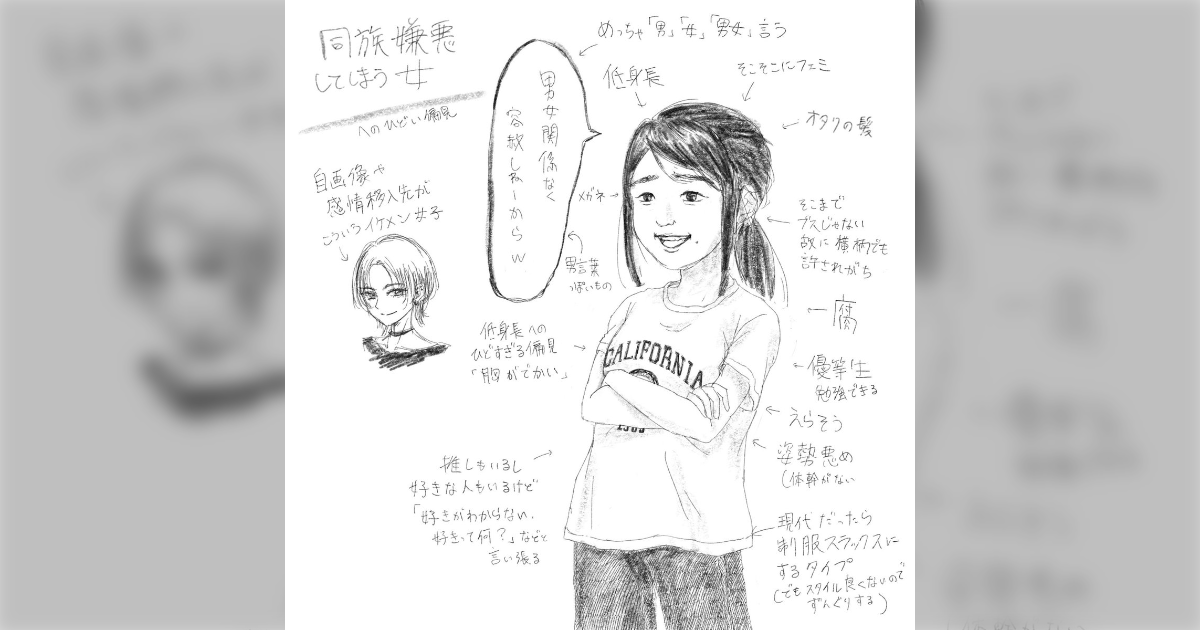 同族嫌悪
してしまう女
へのひどい偏見
自画像や
感情移入先が
こういうイケメン女子
男女関係なく
容赦しねーからw
めっちゃ「男」「女」「男女」言う
低身長
そこそこにフェミ
オタクの髪
メガネ
男言葉
っぽいもの
そこまで
ブスじゃない
故に横柄でも
許されがち
腐
優等生
勉強できる
えらそう
姿勢悪め
(体幹がない
低身長への
ひどすぎる偏見
「胸がでかい」
CALIFORNIA
推しもいるし
好きな人もいるけど
「好きがわからない、
好きって何?」などと
言い張る
現代だったら
制服スラックスに
するタイプ
(でもスタイル良くないので
ずんぐりする)